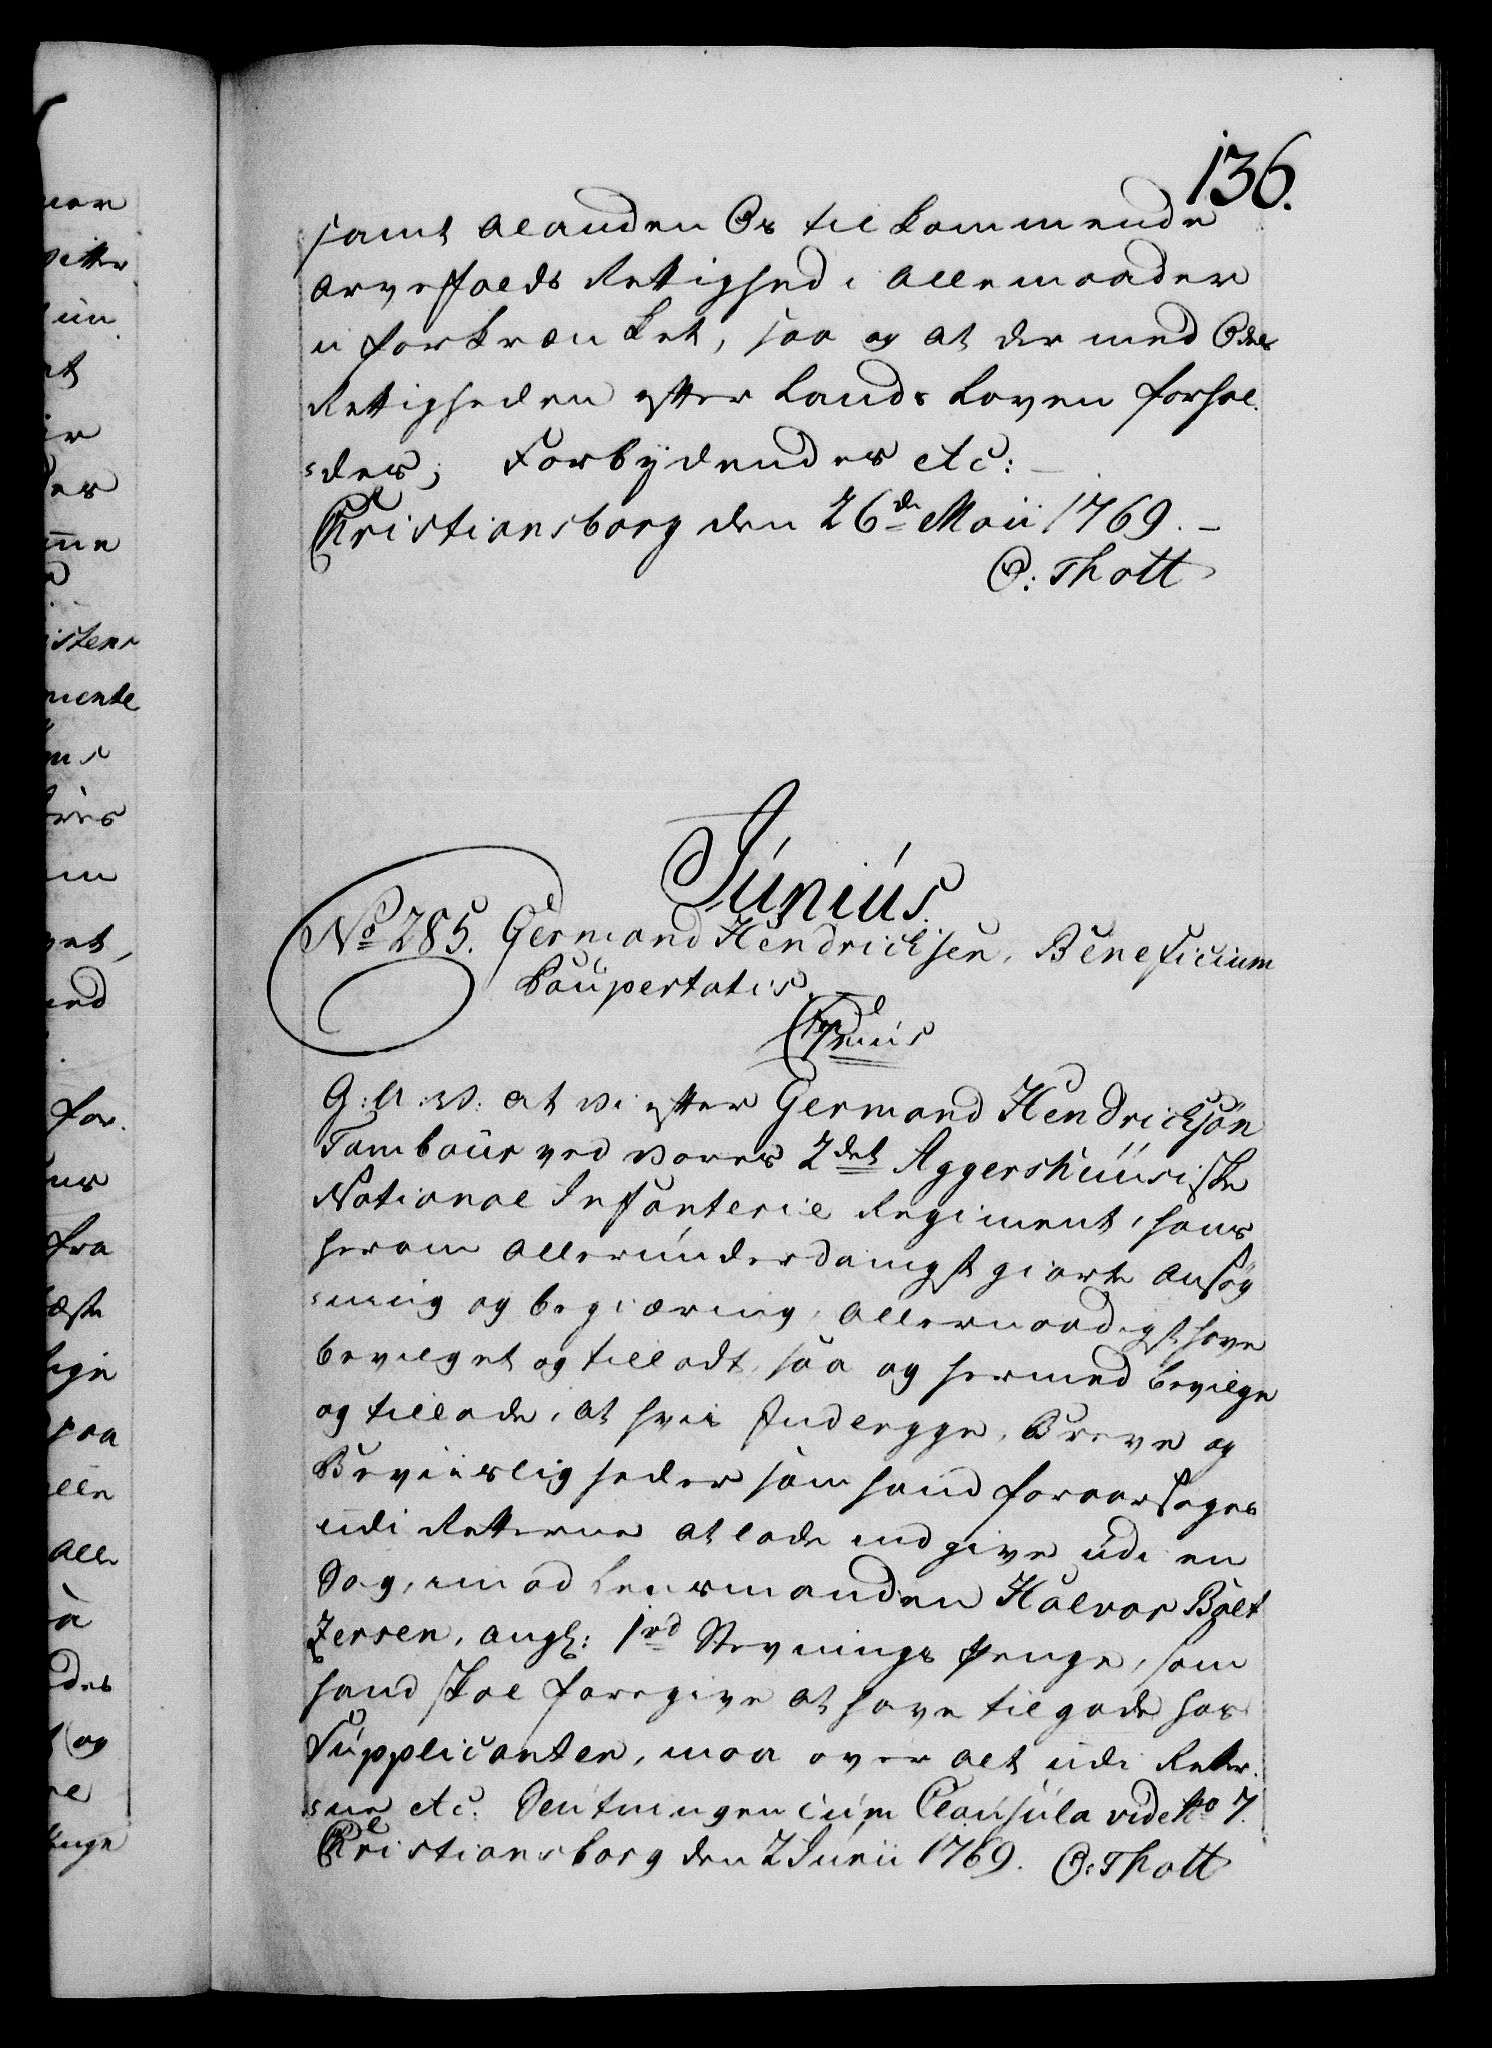 136.
samt al anden Os tilkommende
arvefalds Rettighed i alle maader
uforkrænket, saa og at der med Odels
Rettigheden efter Lands Loven forhol
des; Forbydendes etc:
Christiansborg den 26de Maii 1769.
O: Thott
Júniús.
No 285. Germand Hendrichsen, Beneficium
Paupertatis
G: A: V: at Vi efter Germand Hendrichsøn
Tambour ved vores 2det Aggershuusiske
National Infanterie Regiment, hans
herom allerunderdanigst giorte ansøg
ning og begiæring, allernaadigst have
bevilget og tilladt, saa og hermed bevilge
og tillade, at hvis Indlegge, Breve og
Beviisligheder som hand foraarsages
udi Retterne at lade indgive udi en
Sag, imod Lensmanden Halvor Bolt
Jersen, angl: 1rd Stevnings Penge, som
hand skal foregive at have tilgode hos
Supplicanten, maa over alt udi Retter
ne etc. Slutningen cum Clausula vide No 7.
Christiansborg den 2 Junii 1769. O: Thott